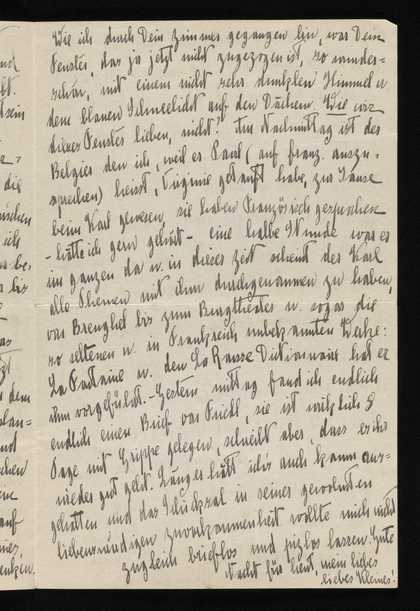 Wie ich durch Dein Zimmer gegangen bin, war Dein
Fenster, das ja jetzt nicht zugezogen ist, so wunder-
schön, mit einem nicht sehr dunklen Himmel u
dem blauen Schneelicht auf den Dächern. Wie wir
dieses Fenster lieben, nicht? Am Nachmittag ist der
Belgier den ich, weil er Paul (auf franz. auszu-
sprechen) heisst, Virginie getauft habe, zur Jause
beim Karl gewesen, sie haben Französisch gesprochen
- hätte ich gern gehört - eine halbe Stunde war er
im ganzen da u. in dieser Zeit scheint der Karl
alle Themen mit ihm durchgenommen zu haben,
von Breughel bis zum Burgtheater u. sogar die
so seltenen u. in Frankreich unbekannten Werke:
La Fontaine u. den La Rousse Dictionnaire hat er
ihm vorgeführt. - Gestern mittag fand ich endlich
endlich einen Brief von Friedl, sie ist wirklich 8
Tage mit Grippe gelegen, schreibt aber, dass es ihr
wieder gut geht. Länger hätt ich's auch kaum aus-
gehalten und das Schicksal in seiner gewohnten
liebenswürdigen Zuvorkommenheit wollte mich nicht
zugleich brieflos und lassen. Gute
Nacht für heut, mein liebes
liebes Kleines!